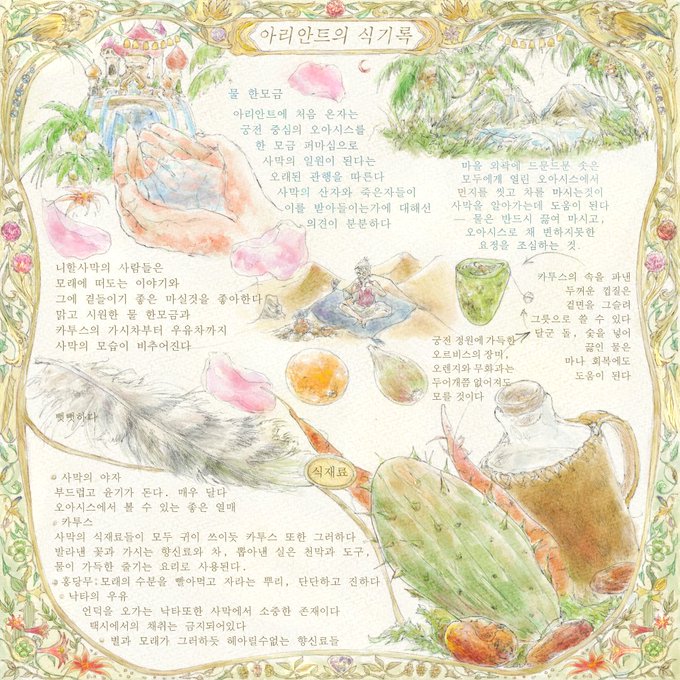 아리안트의 식기록
물 한모금
아리안트에 처음 온자는
궁전 중심의 오아시스를
한 모금 퍼마심으로
사막의 일원이 된다는
오래된 관행을 따른다
사막의 산자와 죽은자들이
이를 받아들이는가에 대해선
의견이 분분하다
마을 외곽에 드문드문 솟은
모두에게 열린 오아시스에서
먼지를 씻고 차를 마시는것이
사막을 알아가는데 도움이 된다
— 물은 반드시 끓여 마시고,
오아시스로 채 변하지못한
요정을 조심하는 것.
니한사막의 사람들은
모래에 떠도는 이야기와
그에 곁들이기 좋은 마실것을 좋아한다
맑고 시원한 물 한모금과
카투스의 가시차부터 우유차까지
사막의 모습이 비추어진다
카투스의 속을 파낸
두꺼운 껍질은
겉면을 그슬려
그릇으로 쓸 수 있다
달군 돌, 숯을 넣어
끓인 물은
마나 회복에도
도움이 된다
궁전 정원에 가득한
오르비스의 장미,
오렌지와 무화과는
두어개쯤 없어져도
모를 것이다
뻣뻣하다
식재료
사막의 야자
부드럽고 윤기가 돈다. 매우 달다
오아시스에서 볼 수 있는 좋은 열매
카투스
사막의 식재료들이 모두 귀이 쓰이듯 카투스 또한 그러하다
발라낸 꽃과 가시는 향신료와 차, 뽑아낸 실은 천막과 도구,
물이 가득한 줄기는 요리로 사용된다.
홍당무: 모래의 수분을 빨아먹고 자라는 뿌리, 단단하고 진하다
낙타의 우유
언덕을 오가는 낙타또한 사막에서 소중한 존재이다
택시에서의 채취는 금지되어있다
별과 모래가 그러하듯 헤아릴수없는 향신료들